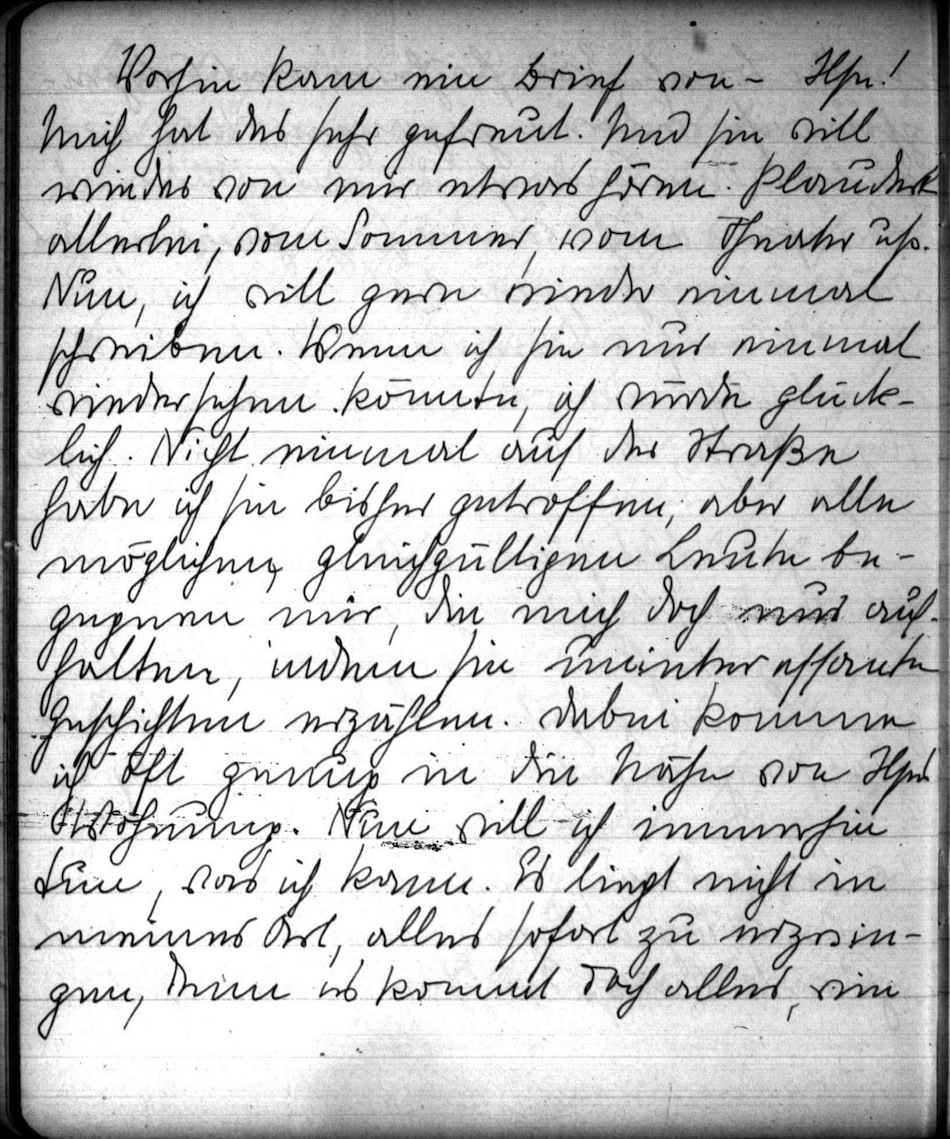 Vorhin kam ein Brief von – Ilse!
Mich hat das sehr gefreut. Und sie will
wieder von mir etwas hören. Plaudert
allerlei, vom Sommer, vom Theater usw.
Nun, ich will gern wieder einmal
schreiben. Wenn ich sie nur einmal
wiedersehen könnte, ich würde glück-
lich. Nicht einmal auf der Straße
habe ich sie bisher getroffen, aber alle
möglichen, gleichgültigen Leute be-
gegnen mir, die mich doch nur auf-
halten, indem sie uninteressante
Geschichten erzählen. Dabei komme
ich oft genug in die Nähe von Ilses
Wohnung. Nun will ich immerhin
tun, was ich kann. Es liegt nicht in
meiner Art, alles sofort zu erzwin-
gen, denn es kommt doch alles, wie